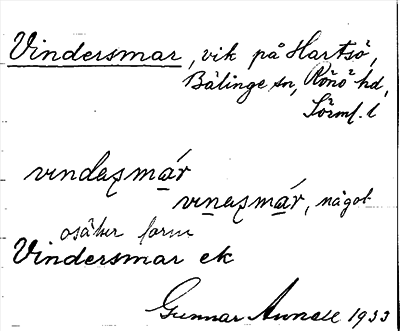 Vindersmar, vik på Hartsö,
Bälinge sn, Rönö hd,
Sörml. l
vindaşmár
vinaşmár, något
osäker form
Vindersmar ek
Gunnar 1933